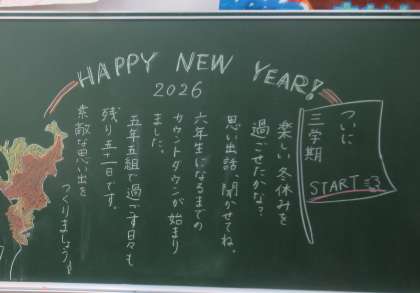 HAPPY NEW YEAR!
2026
ついに
三学期
START
楽しい冬休みを
過ごせたかな?
思い出話、聞かせてね。
六年生になるまでの
カウントダウンが始まり
ました。
五年五組で過ごす日々も
残り五十一日です。
素敵な思い出を
つくりましょう